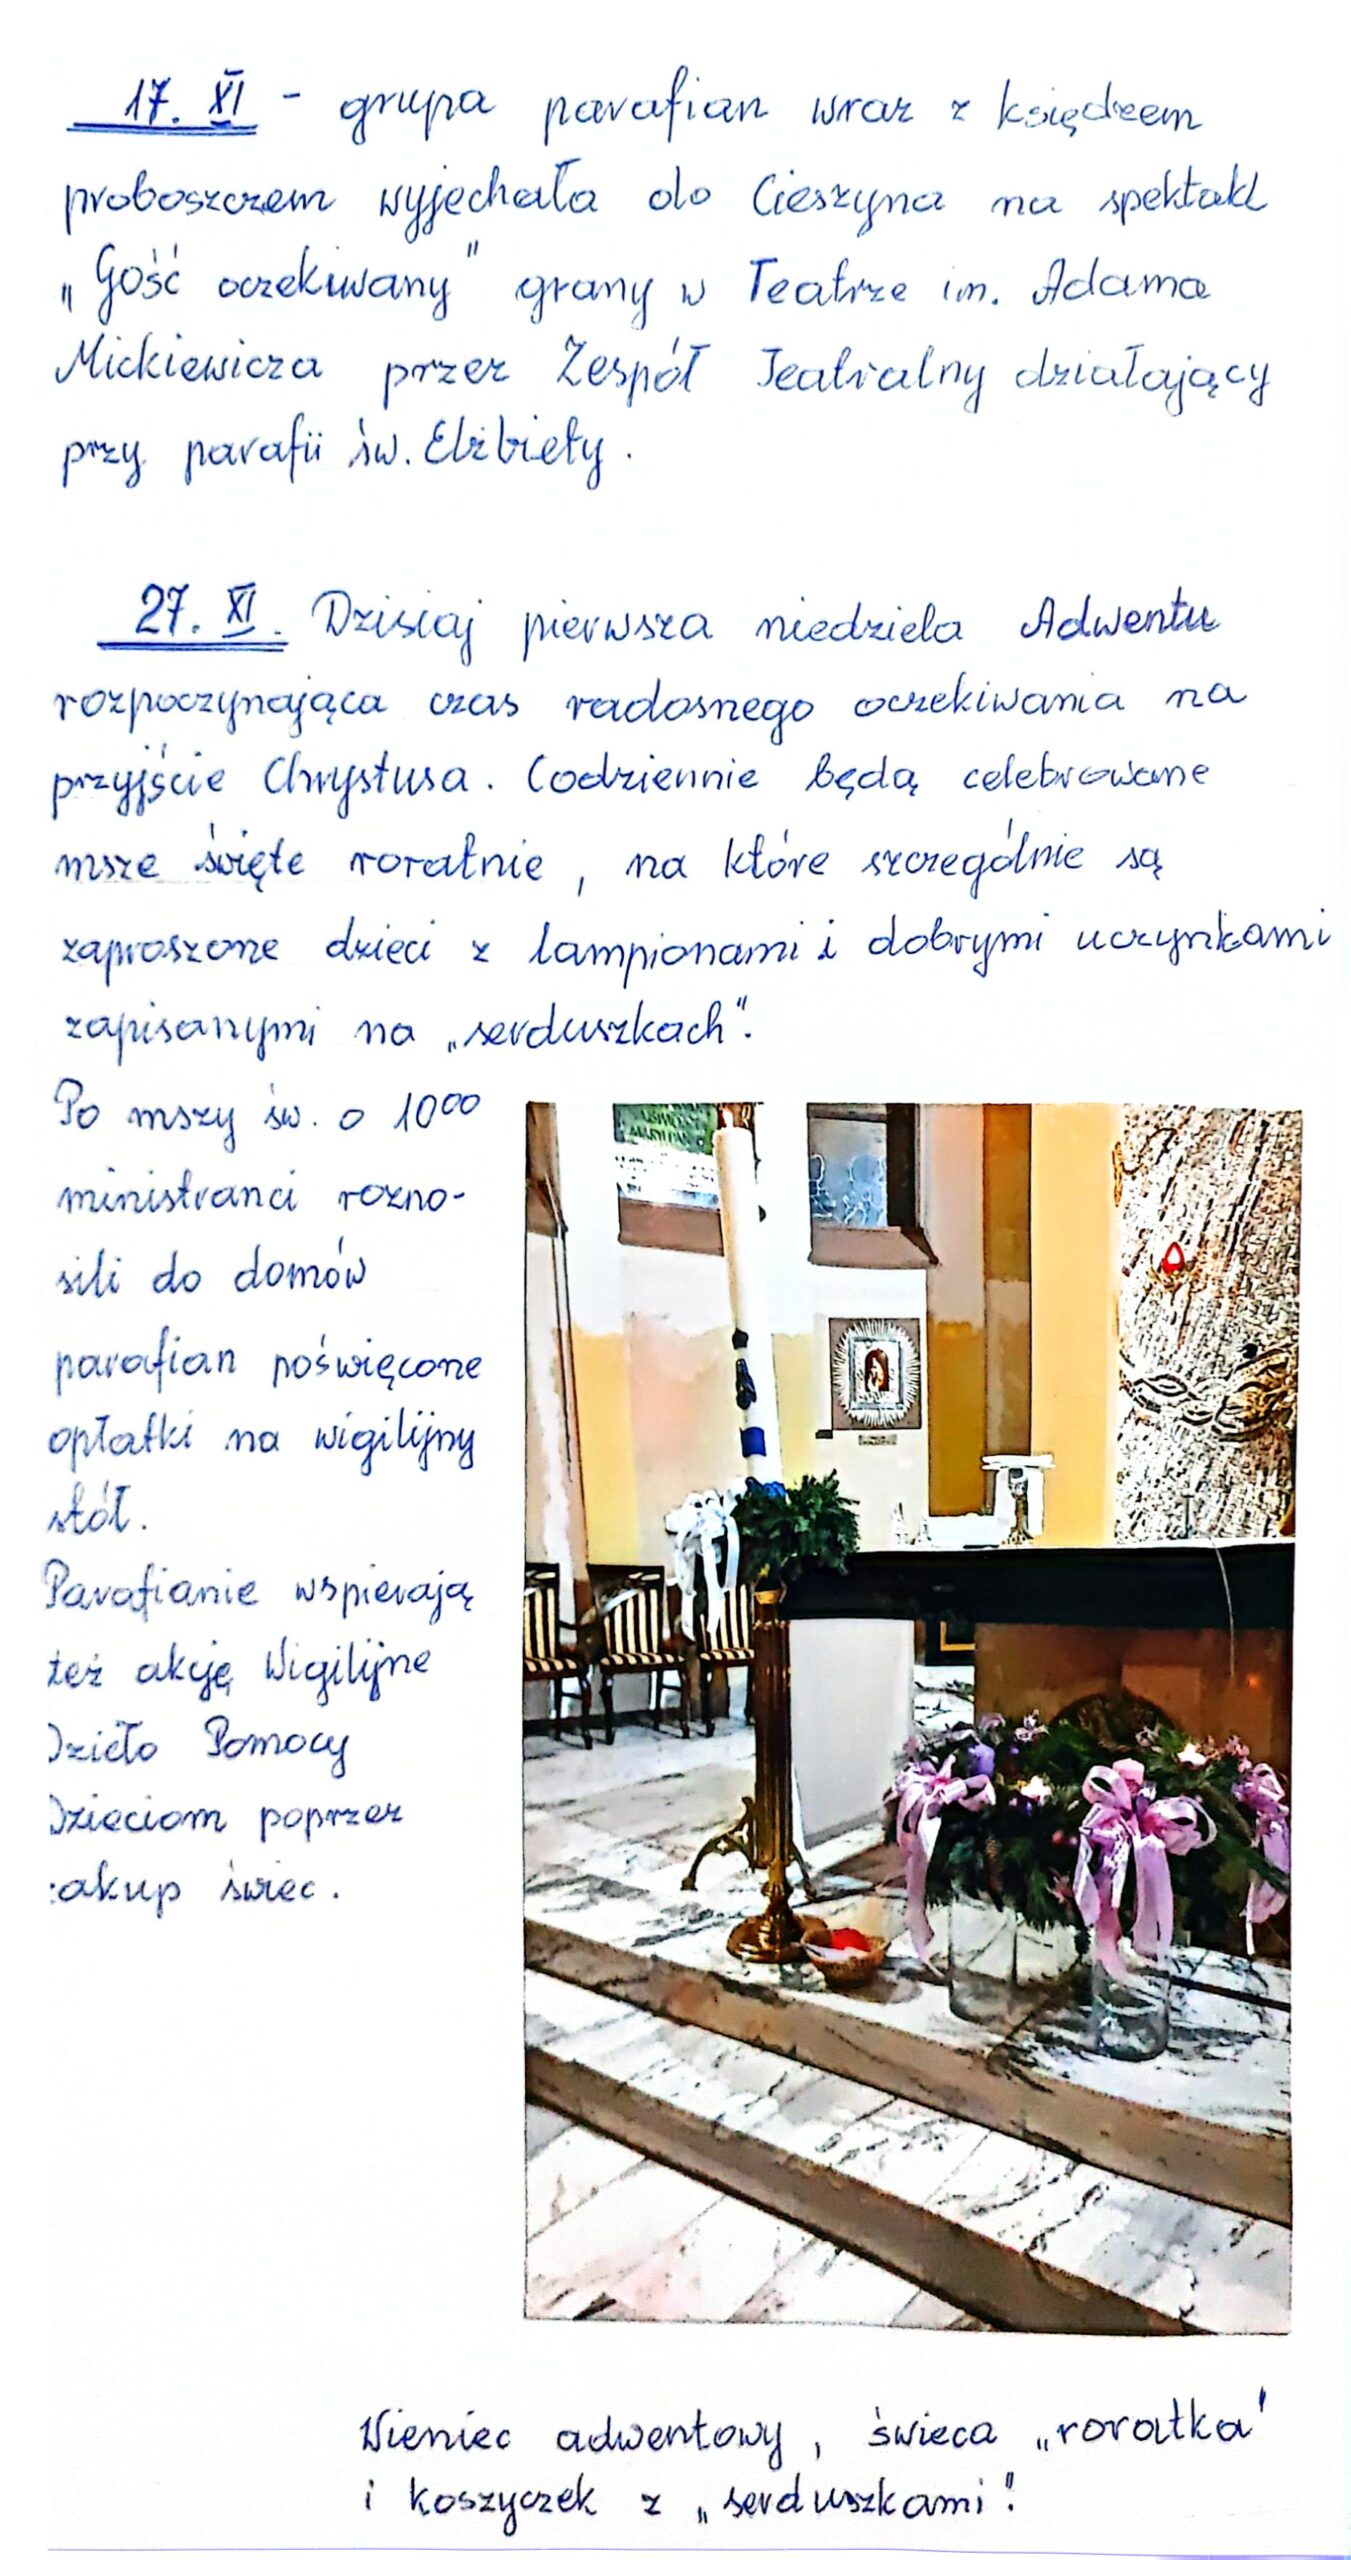 17. XI - grupa parafian wraz z księdzem
proboszczem wyjechała do Cieszyna na spektakl
„Gość oczekiwany" grany w Teatrze im. Adama
Mickiewicza przez Zespół Teatralny działający
przy parafii św. Elżbiety.
27. XI. Dzisiaj pierwsza niedziela Adwentu
rozpoczynająca czas radosnego oczekiwania na
przyjście Chrystusa. Codziennie będą celebrowane
msze święte roratnie, na które szczególnie są
zaproszone dzieci z lampionami i dobrymi uczynkami
zapisanymi na „serduszkach".
Po mszy św. o 10⁰⁰
ministranci rozno-
sili do domów
parafian poświęcone
opłatki na wigilijny
stół.
Parafianie wspierają
też akcję Wigilijne
Dzieło Pomocy
Dzieciom poprzez
zakup świec.
Wieniec adwentowy, świeca „roratka"
i koszyczek z „serduszkami".